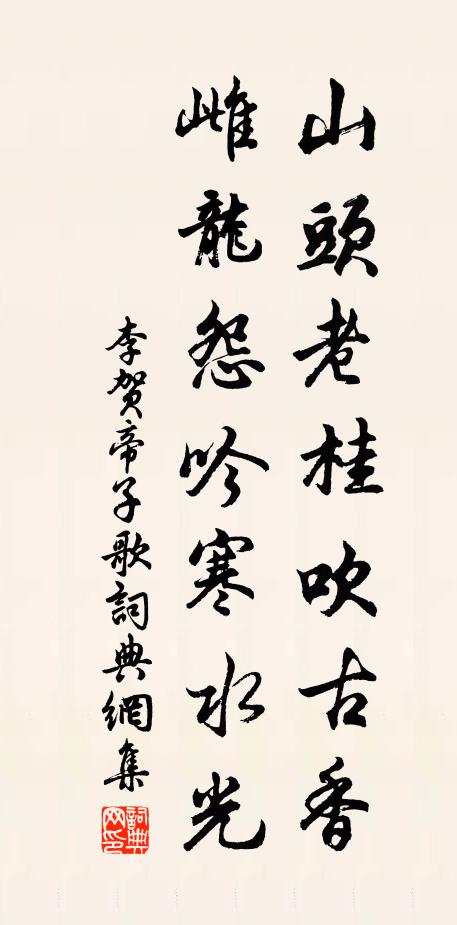 山頭老桂吹古香
雌龍怨吟寒水光
李賀帝子歌詞典網集
詞典網印